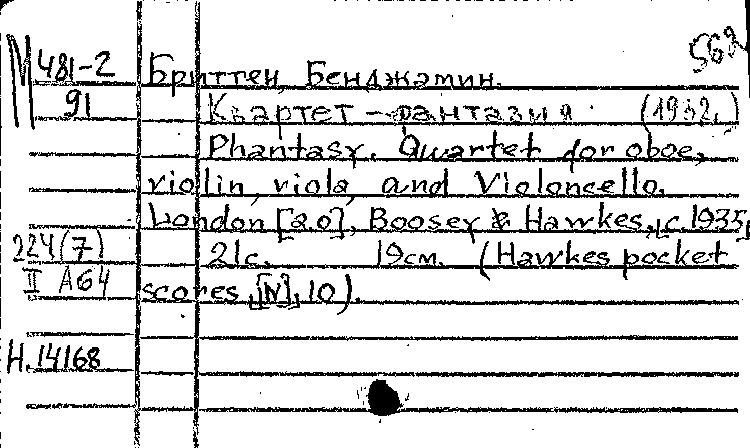 562
М 481-2 Бриттен, Бенджамин.
91 Квартет-фантазия. (1932.)
Phantasy. Quartet for oboe,
violin, viola, and Violoncello.
London [a.o], Boosey & Hawkes, [c.1935]
224(7) 21с. 19см. (Hawkes pocket
II А64 scores, [N], 10).
Н.14168